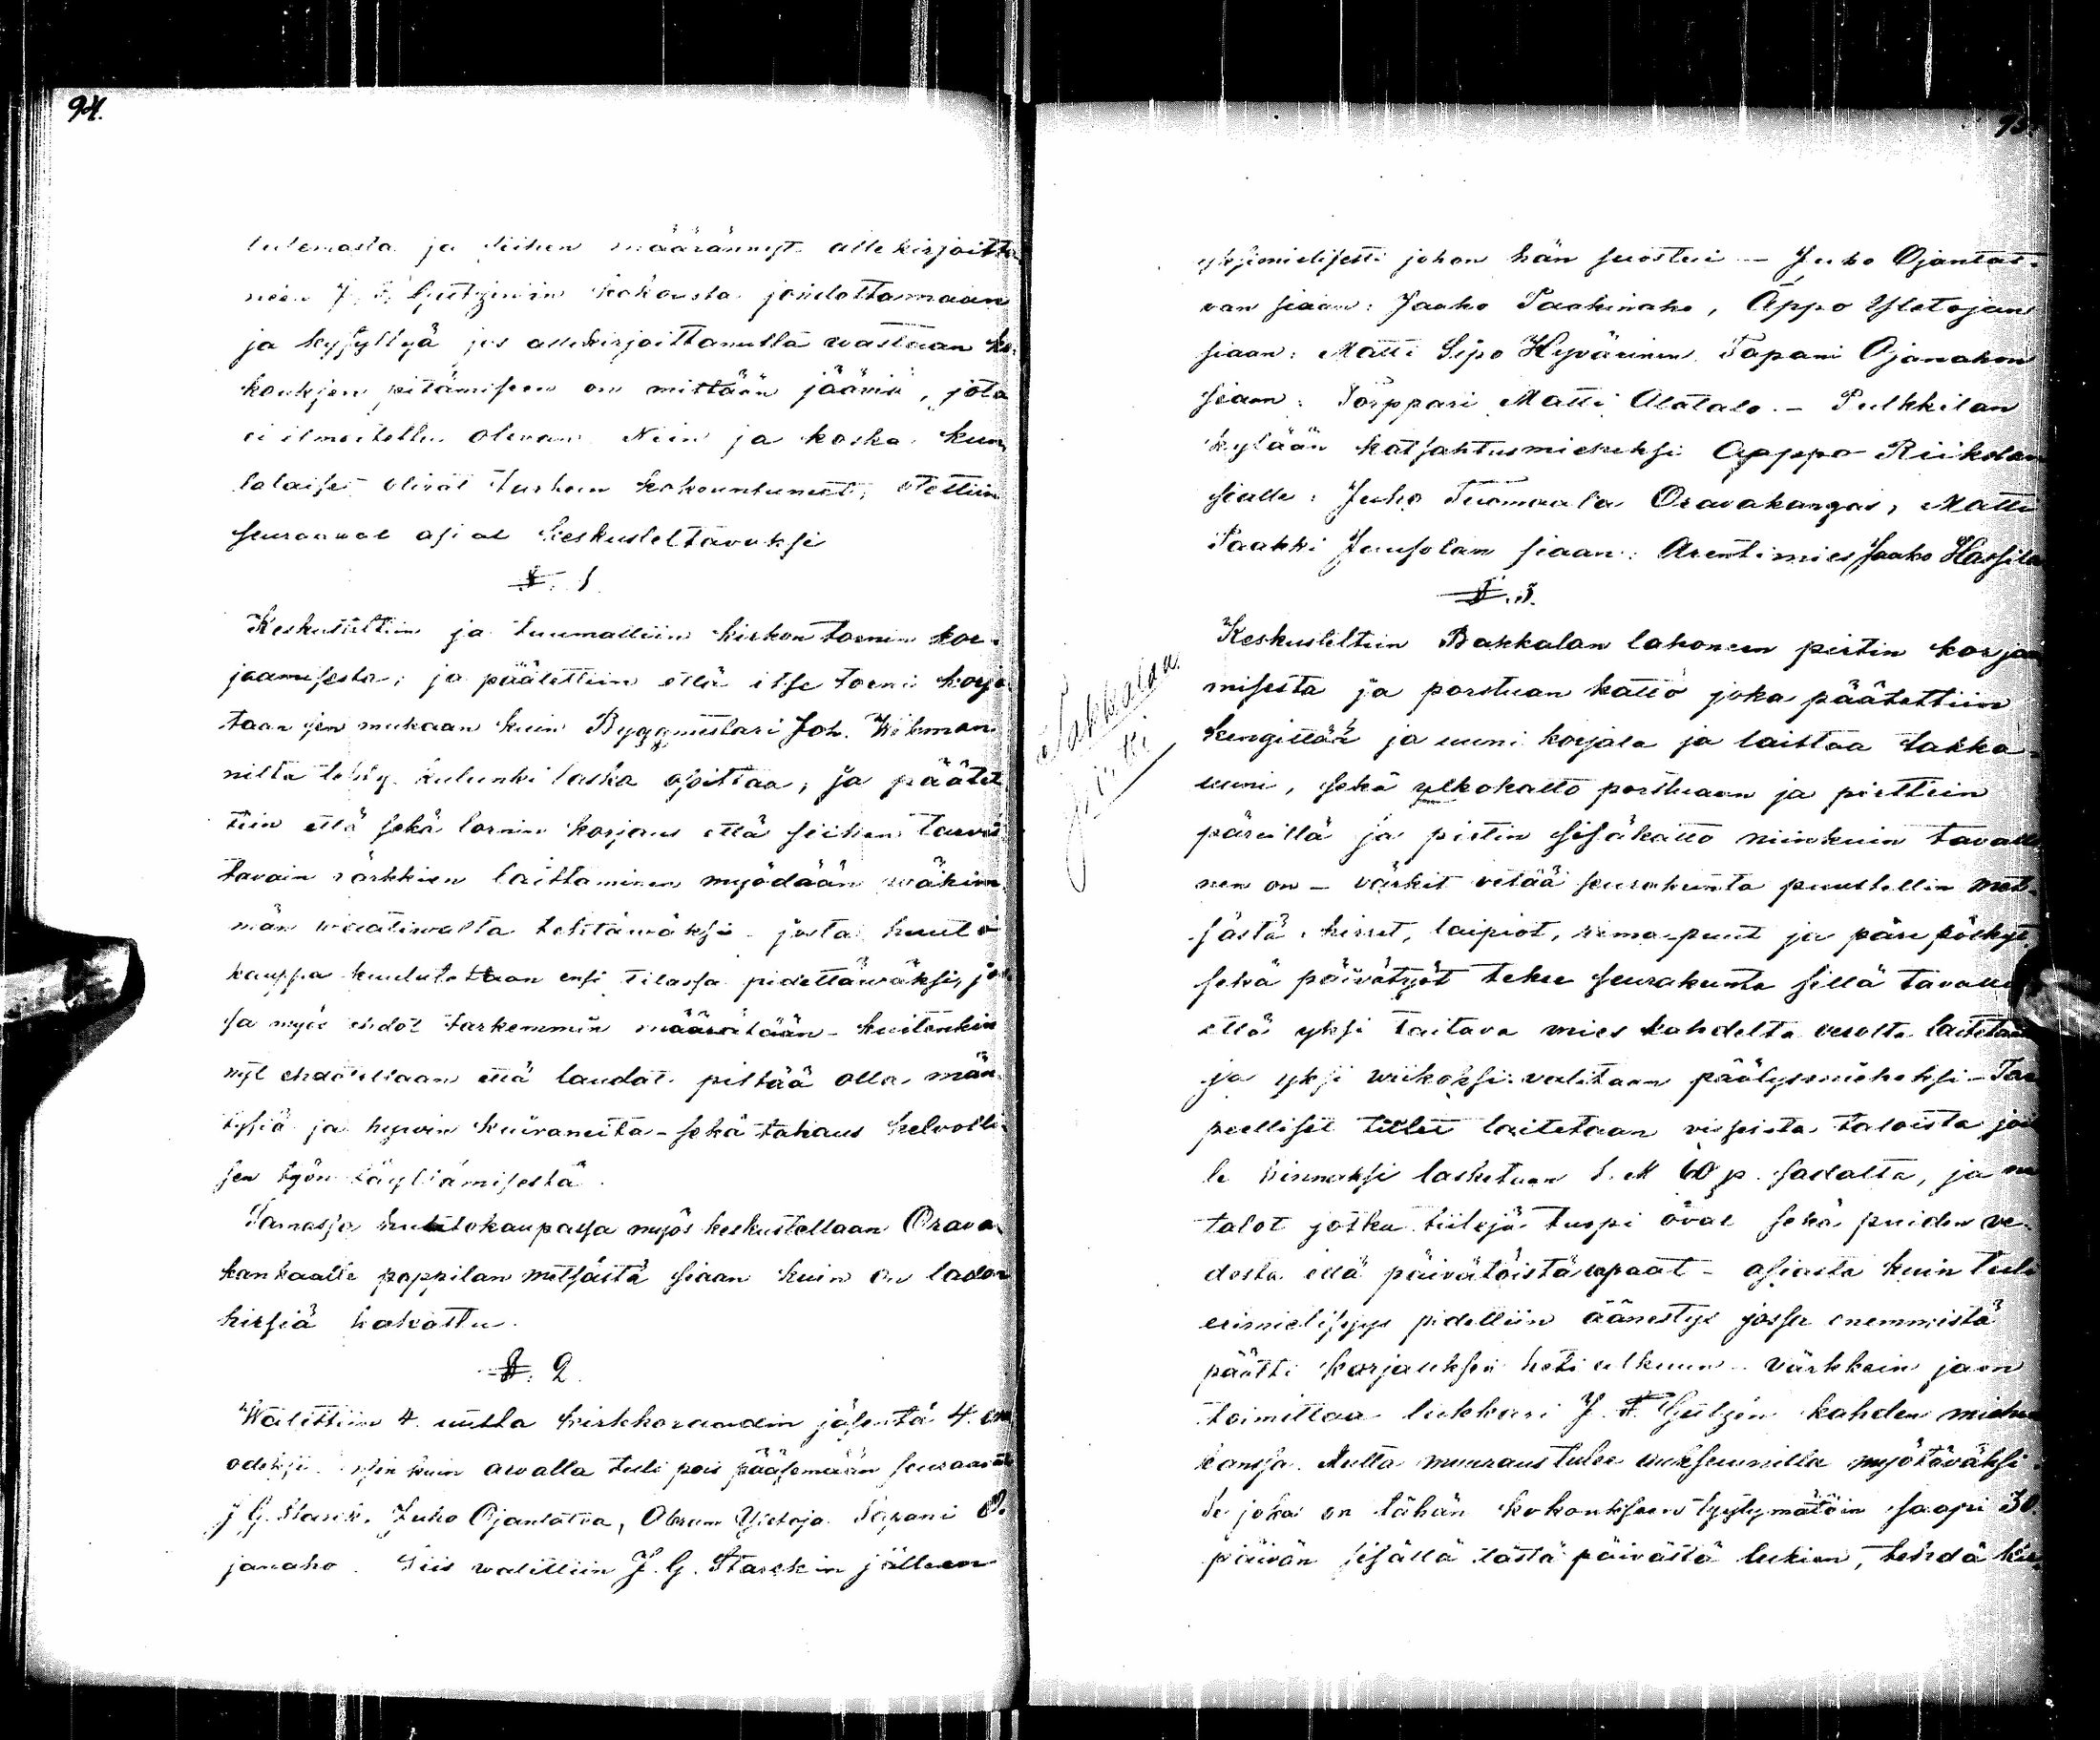 94.
tulemasta ja siihen määrännyt allekirjoitta-
neen J. F. Gutzenin kokousta johdattamaan
ja kysyttyä jos allekirjoittanutta wastaan ko-
kouksen pitämiseen on mittään jääviä, jota
ei ilmoitettu olevan. Niin ja koska kun-
talaiset olivat kokountuneet, otettiin
seuraavat asiat keskusteltavaksi
§. 1
Keskusteltiin ja tuumattiin kirkon tornin kor-
jaamisesta; ja päätettiin että itse torni korja-
taan sen mukaan kuin Byggmestari Joh. Wikman-
nilta tehty kulunki laska osoittaa, ja päätet-
tiin että sekä tornin korjaus että siihen tarvit-
tavain värkkien laittaminen myödään wähim-
män waativalta tehtäwäksi - josta huuto
kauppa kuulutetaan ensi tilassa pidettäwäksi, jos-
sa myös ehdot tarkemmin määrätään - kuitenkin
nyt ehdotellaan että laudat pittää olla män-
tysiä ja hywin kuivaneita - sekä takaus kelvolli-
sen työn täyttämisestä.
Samassa huutokaupassa myös keskustellaan Orava-
kankaalle pappilan metsästä siaan kuin on ladon
hirsiä hakattu.
§. 2.
Walittiin 4. uutta kirkkoraadin jäsentä 4.
odeksi. sen kuin arvalla tuli pois pääsemään seuraavat
J G. Starck, Juho Ojantatva, Abram Yletoja Tapani O-
janaho. Siis walittiin J. G. Starckin jälleen
95.
yksimielisesti johon hän suostui - Juho Ojantat-
van siaan: Jaako Paakinaho, Appo Yletojan
siaan: Matti Sipo Hyvärinen Tapani Ojanahon
siaan: Torppari Matti Alatalo. - Pulkkilan
kylään katsahtusmieheksi Appo Riikolan
sialle: Juho Tuomaala Oravakangas, Matti
Paakki Juusolan siaan: Arentimies Jaako Hassila
§. 3.
Pakkalan
pirtti
Keskusteltiin Bakkalan lahoneen pirtin korjaa-
misesta ja porstuan katto joka päätettiin
kengittää ja uuni korjata ja laittaa takka-
uuni, sekä ulkokatto porstuaan ja pirttiin
päreillä ja pirtin sisäkatto niinkuin tavalli-
nen on - värkit vetää seurakunta puustellin met-
sästä, hirret, laipiot, rima-puut ja päre pölkyt,
sekä päivätyöt tekee seurakunta sillä tavalla
että yksi taitava mies kahdelta laitetaan
ja yksi wiikoksi valitaan päälysmieheksi - Tar-
peelliset tiilet laitetaan taloista joi-
le hinnaksi lasketaan 1. M 60 p. sadalta, ja ne
talot jotka tiilejä tuopi ovat sekä puiden ve-
dosta että päivätöistä wapaat - asiasta kuin tuli
erimielisyys pidettiin äänestys jossa enemmistö
päätti korjauksen heti alkuun - värkkein jaon
toimittaa lukkari J. F. Gutzen kahden miehen
kanssa. Mutta muuraus tulee myötäväksi.
Se joka on tähän kokoukseen tyytymätöin saapi 30.
päivän sisällä tästä päivästä lukien, tehdä